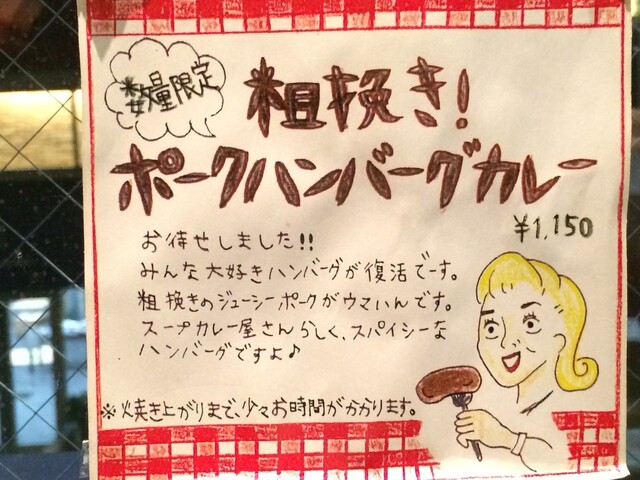 数量限定
粗挽き!
ポークハンバーグカレー
¥1,150
お待せしました!!
みんな大好きハンバーグが復活でーす。
粗挽きのジューシーポークがウマいんです。
スープカレー屋さんらしく、スパイシーな
ハンバーグですよ♪
※焼き上がりまで、少々お時間がかかります。